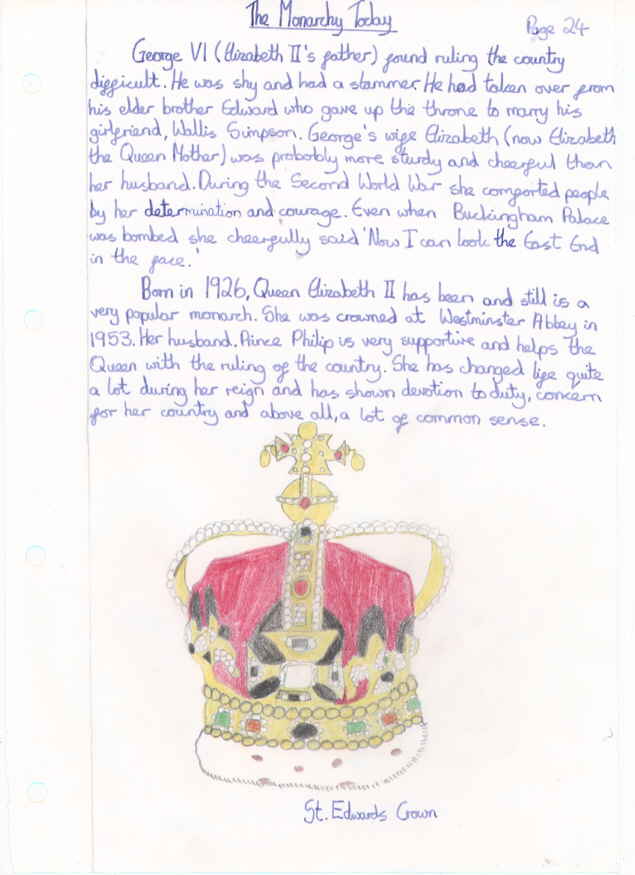 The Monarchy Today
Page 24
George VI (Elizabeth II's father) found ruling the country
difficult. He was shy and had a stammer. He had taken over from
his elder brother Edward who gave up the throne to marry his
girlfriend, Wallis Simpson. George's wife Elizabeth (now Elizabeth
the Queen Mother) was probably more sturdy and cheerful than
her husband. During the Second World War she comforted people
by her determination and courage. Even when Buckingham Palace
was bombed she cheerfully said 'Now I can look the East End
in the face.'
Born in 1926, Queen Elizabeth II has been and still is a
very popular monarch. She was crowned at Westminster Abbey in
1953. Her husband. Prince Philip is very supportive and helps the
Queen with the ruling of the country. She has changed life quite
a lot during her reign and has shown devotion to duty, concern
for her country and above all, a lot of common sense.
St. Edwards Crown